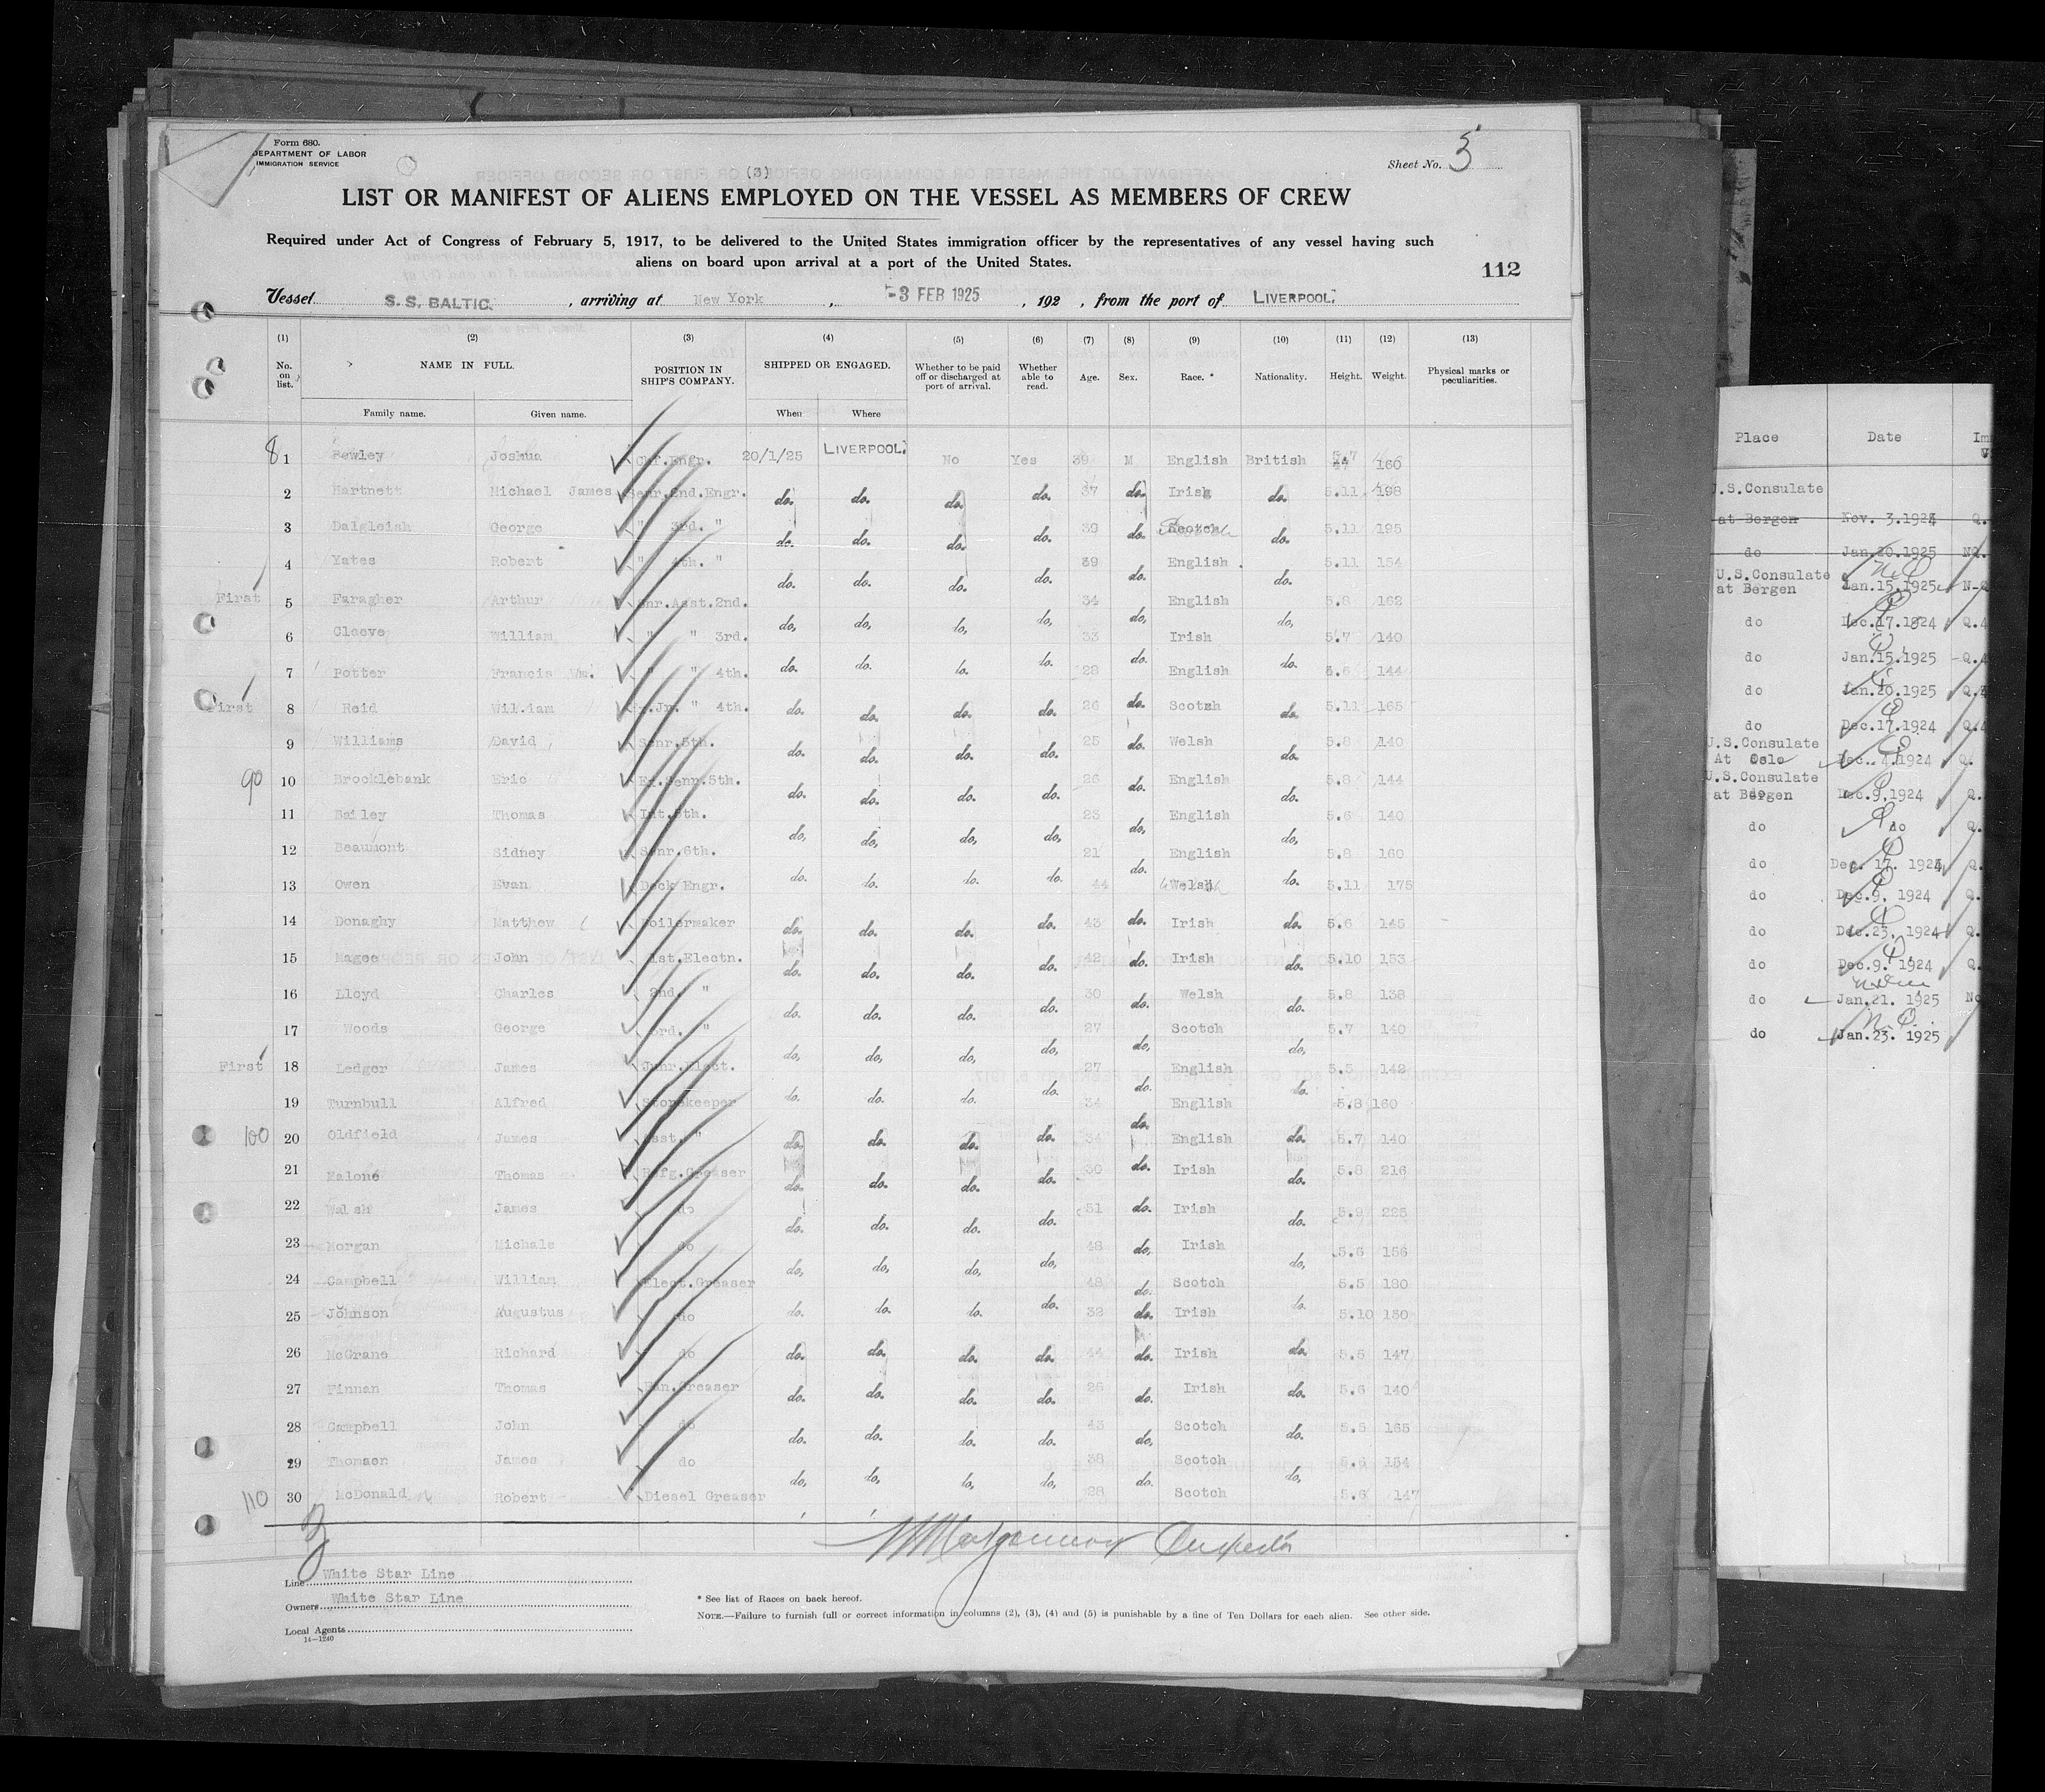 Form 680.
DEPARTMENT OF LABOR
IMMIGRATION SERVICE
(3)
Sheet No. 5
LIST OR MANIFEST OF ALIENS EMPLOYED ON THE VESSEL AS MEMBERS OF CREW
Required under Act of Congress of February 5, 1917, to be delivered to the United States immigration officer by the representatives of any vessel having such
aliens on board upon arrival at a port of the United States.
112
Vessel S. S. BALTIC. , arriving at New York , -3 FEB 1925 , 192 , from the port of LIVERPOOL.
(1) (2) (3) (4) (5) (6) (7) (8) (9) (10) (11) (12) (13)
No. on list. NAME IN FULL. POSITION IN SHIP'S COMPANY. SHIPPED OR ENGAGED. Whether to be paid off or discharged at port of arrival. Whether able to read. Age. Sex. Race. * Nationality. Height. Weight. Physical marks or peculiarities.
Family name. Given name. When Where
1 Bewley Joshua Chf.Engr. 20/1/25 LIVERPOOL. No Yes 39 M English British 5.7 160
2 Hartnett Michael James Senr.2nd.Engr. do. do. do. do. 37 do. Irish do. 5.11 198
3 Dalgleish George " 3rd. " do. do. do. do. 39 do. Scotch do. 5.11 195
4 Yates Robert " 4th. " do. do. do. do. 39 do. English do. 5.11 154
First 5 Faragher Arthur Jnr.Asst.2nd. do, do, do, do, 34 do. English do, 5.8 162
6 Cleeve William " " 3rd. do. do. do. do. 33 do. Irish do. 5.7 140
7 Potter Francis Wm. " " 4th. 28 English 5.6 144
First 8 Reid William Jr. " 4th. do. do. do. do. 26 do. Scotch do. 5.11 165
9 Williams David Senr.5th. do. do. do. do. 25 do. Welsh do. 5.8 140
90 10 Brocklebank Eric Ex.Senr.5th. do. do. do. do. 26 do. English do. 5.8 144
11 Bailey Thomas Int.5th. do, do, do, do, 23 do, English do, 5.6 140
12 Beaumont Sidney Senr.6th. do. do. do. do. 21 do. English do. 5.8 160
13 Owen Evan Deck Engr. 44 Welsh 5.11 175
14 Donaghy Matthew Boilermaker do. do. do. do. 43 do. Irish do. 5.6 145
15 Magee John 1st.Electn. do. do. do. do. 42 do. Irish do. 5.10 153
16 Lloyd Charles 2nd. " do. do. do. do. 30 do. Welsh do. 5.8 138
17 Woods George 3rd. " do, do, do, do, 27 do, Scotch do, 5.7 140
First 18 Ledger James Junr.Elect. do. do. do. do. 27 do. English do. 5.5 142
19 Turnbull Alfred Storekeeper 34 English 5.8 160
100 20 Oldfield James Asst. " do. do. do. do. 34 do. English do. 5.7 140
21 Malone Thomas Refg.Greaser do. do. do. do. 30 do. Irish do. 5.8 216
22 Walsh James do do. do. do. do. 51 do. Irish do. 5.9 225
23 Morgan Michale do do, do, do, do, 48 do, Irish do, 5.6 156
24 Campbell William Elect.Greaser do. do. do. do. 48 do. Scotch do. 5.5 180
25 Johnson Augustus do 32 do. Irish 5.10 150
26 McGrane Richard do do. do. do. do. 44 do. Irish do. 5.5 147
27 Finnan Thomas Fan.Greaser do. do. do. do. 26 do. Irish do. 5.6 140
28 Campbell John do do. do. do. do. 43 do, Scotch do. 5.5 165
29 Thomson James do do, do, do, do, 38 do. Scotch do, 5.6 154
110 30 McDonald Robert Diesel Greaser 28 Scotch 5.6 147
Line White Star Line
Owners White Star Line
Local Agents
14—1240
* See list of Races on back hereof.
NOTE.—Failure to furnish full or correct information in columns (2), (3), (4) and (5) is punishable by a fine of Ten Dollars for each alien. See other side.
Place Date
U.S.Consulate
at Bergen Nov. 3.1924 Q.
do Jan.20.1925 NQ.
U.S.Consulate
at Bergen Jan.15.1925 N-Q
do Dec.17.1924 Q.
do Jan.15.1925 Q.
do Jan.20.1925 Q.
do Dec.17.1924 Q.
U.S.Consulate
At Oslo Dec. 4.1924 Q.
U.S.Consulate
at Bergen Dec.9.1924 Q.
do do Q.
do Dec. 17. 1924 Q.
do Dec.9. 1924 Q.
do Dec.23. 1924 Q.
do Dec.9. 1924 Q.
do Jan.21. 1925
do Jan.23. 1925